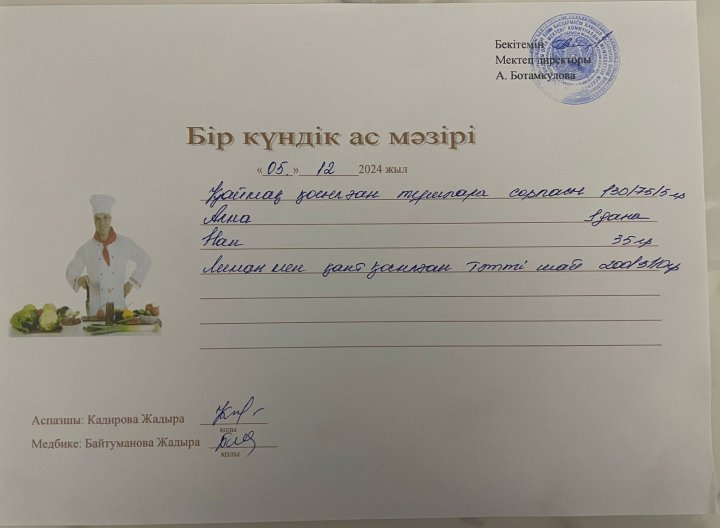 Бекітемін
Мектеп директоры
А. Ботамкулова
Бір күндік ас мәзірі
« 05. » 12 2024 жыл
Қаймақ қосылған тұшпара сорпасы 130/75/5 гр
Алма 1 дана
Нан 35 гр
Лимон мен қант қосылған тәтті шай 200/5/10 гр
Аспазшы: Кадирова Жадыра
қолы
Медбике: Байтуманова Жадыра
қолы